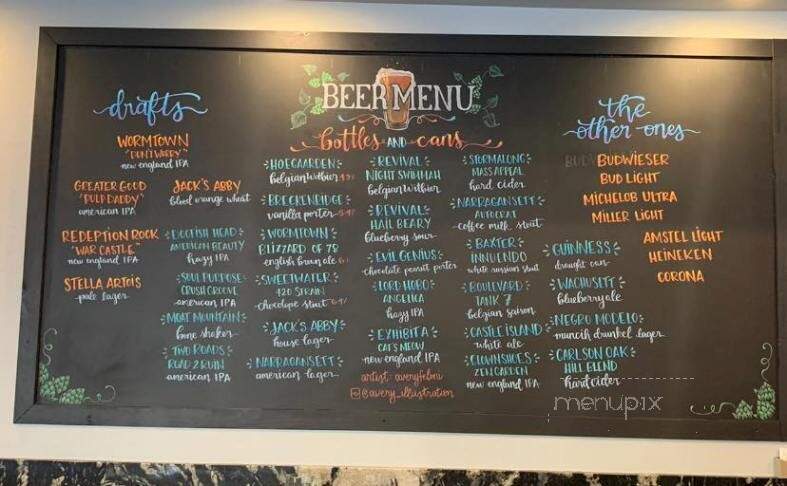 BEER MENU
bottles AND cans
drafts
WORMTOWN
"DON'T WORRY"
new england IPA
GREATER GOOD
"PULP DADDY"
american IPA
JACK'S ABBY
blood orange wheat
REDEPTION ROCK
"WAR CASTLE"
new england IPA
STELLA ARTOIS
pale lager
EIGTISH HEAD
AMERICAN BEAUTY
hazy IPA
SOUL PURPOSE
CRUSH GROOVE
american IPA
MOAT MOUNTAIN
bone shaker
TWO ROADS
ROAD 2 RUIN
american IPA
HOEGAARDEN
belgian witbier
BRECKENRIDGE
vanilla porter
WORMTOWN
BLIZZARD OF 78
english brown ale
SWEETWATER
420 STRAIN
chocolope stout
JACK'S ABBY
house lager
NARRAGANSETT
american lager
REVIVAL
NIGHT SWIMMAH
belgian witbier
REVIVAL
HAIL BEARY
blueberry sour
EVIL GENIUS
chocolate peanut porter
LORD HOBO
ANGELICA
hazy IPA
EXHIBIT A
CAT'S MEOW
new england IPA
artist: averyfeloni
@avery_illustration
STORMALONG
MASS APPEAL
hard cider
NARRAGANSETT
AUTOCRAT
coffee milk stout
BAXTER
INNUENDO
white russian stout
BOULEVARD
TANK 7
belgian saison
CASTLE ISLAND
white ale
CLOWNSHOES
ZEN GARDEN
new england IPA
the
other ones
BUDWIESER
BUD LIGHT
MICHELOB ULTRA
MILLER LIGHT
AMSTEL LIGHT
HEINEKEN
CORONA
GUINNESS
draught can
WACHUSETT
blueberry ale
NEGRO MODELO
munich dunkel lager
CARLSON OAK
HILL BLEND
hard cider
menupix